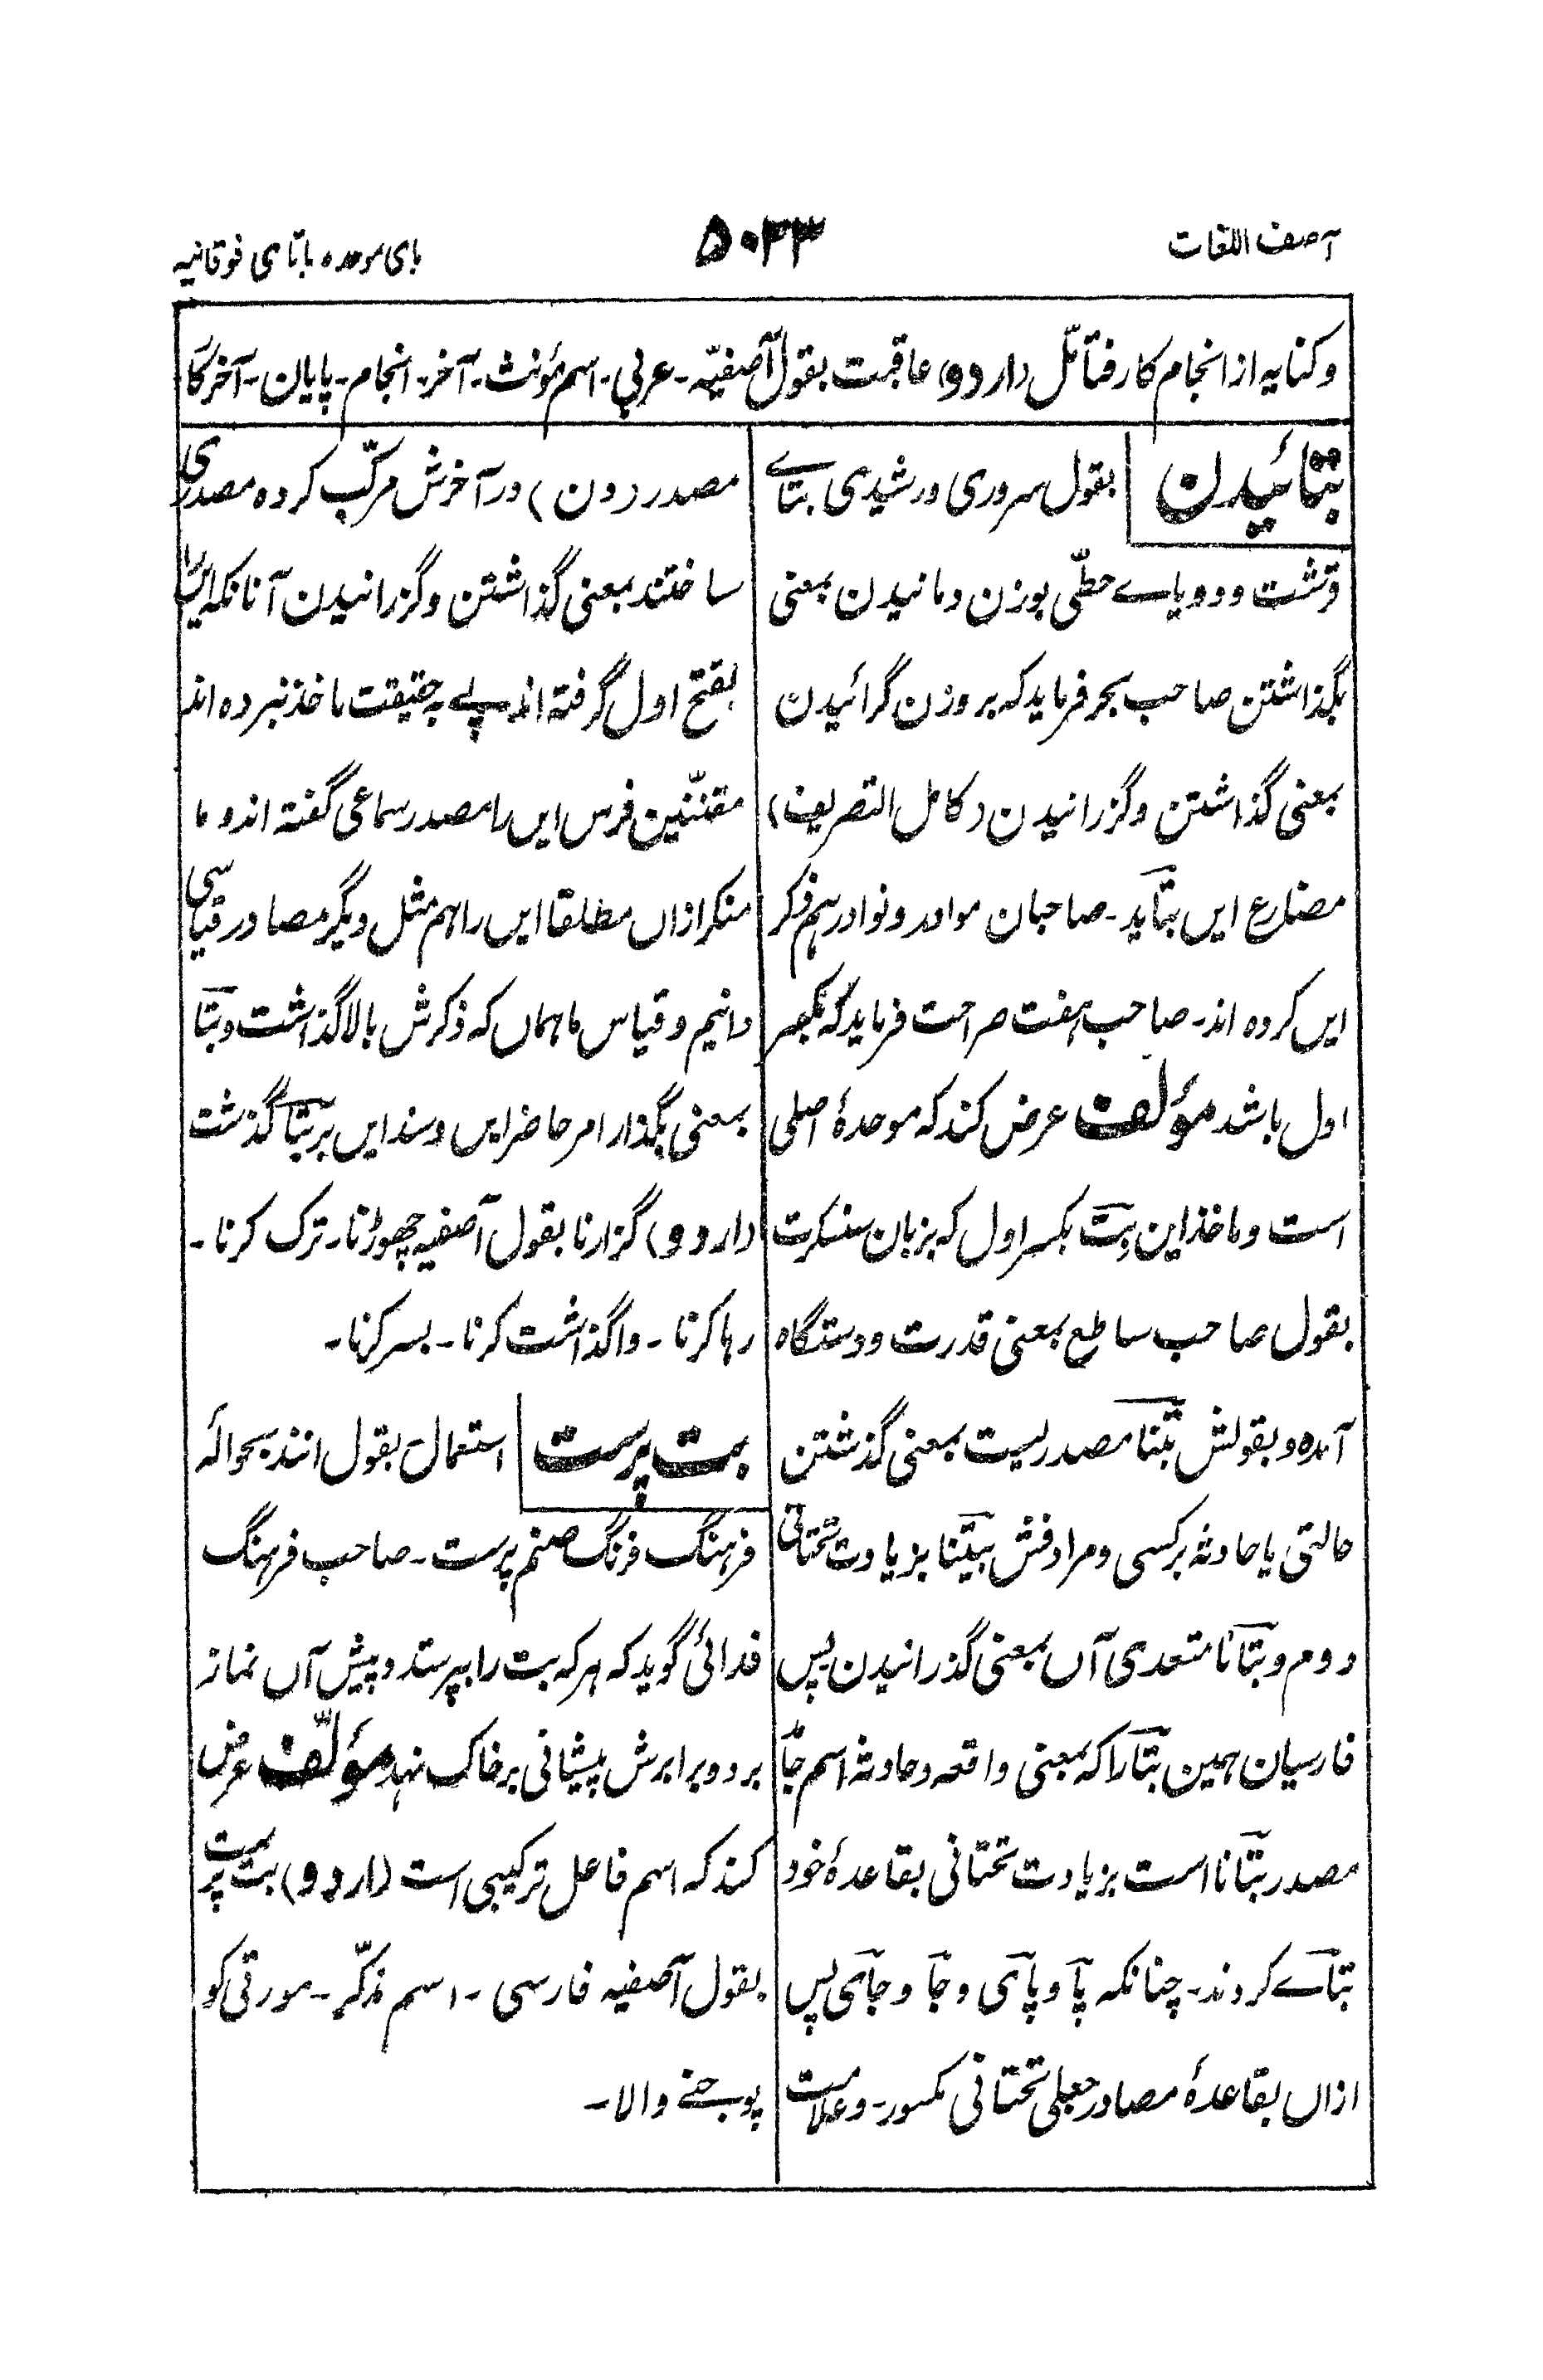 آصف اللغات
۵۰۳۳
بای موحده باتای فوقانیه
وکنایه از انجام کار فتأمّل (اردو) عاقبت بقول آصفیّه - عربی - اسم مؤنث - آخر - انجام - پایان - آخر کا
بتائیدن بقول سروری ورشیدی بتاے
قرشت ودویاے حطّی بوزن دمانیدن بمعنی
بگذاشتن صاحب بحر فرماید که بر وزن گرائیدن
بمعنی گذاشتن وگزرانیدن (کامل التصریف)
مضارع ایں بتآید - صاحبان موارد ونوادر ہم ذکر
ایں کرده اند - صاحب ہفت صراحت فرماید که بکسر
اول باشد مؤلف عرض کند که موحدۂ اصلی
است وماخذ این بِت بکسر اول که بزبان سنسکرت
بقول صاحب ساطع بمعنی قدرت ودستگاه
آمده وبقولش بتنا مصدریست بمعنی گذشتن
حالتی یا حادثۂ برکسی ومرادفش بیتنا بزیادت تحتانی
دوم وبتانا متعدی آں بمعنی گذرانیدن پس
فارسیان ہمین بتا را که بمعنی واقعه وحادثه اسم جا
مصدر بتانا است بزیادت تحتانی بقاعدۂ خود
بتاے کردند - چنانکه پا وپای وجا وجای پس
ازاں بقاعدۂ مصادر جعلی تحتانی مکسور - وعلامت
مصدر (دن) در آخرش مرکّب کرده مصدری
ساختند بمعنی گذاشتن وگزرانیدن آنانکه ایں را
بفتح اول گرفته اند پے به حقیقت ماخذ نبرده اند
مقنّنین فرس ایں را مصدر سماعی گفته اند و ما
منکر ازاں مطلقا ایں را ہم مثل دیگر مصادر قیاسی
دانیم وقیاس ما ہماں که ذکرش بالا گذاشت وبتا
بمعنی بگذار امر حاضر ایں وسند ایں بر بتا گذشت
(اردو) گزارنا بقول آصفیه چھوڑنا - ترک کرنا -
رہا کرنا - واگذاشت کرنا - بسر کرنا -
بت پرست استعمال - بقول انند بحوالۂ
فرہنگ فرنگ صنم پرست - صاحب فرہنگ
فدائی گوید که ہرکه بت را بپرستد وپیش آں نماز
برد وبرابرش پیشانی بر خاک نہد مؤلّف عرض
کند که اسم فاعل ترکیبی است (اردو) بت پرست
بقول آصفیه فارسی - اسم مذکّر - مورتی کو
پوجنے والا -